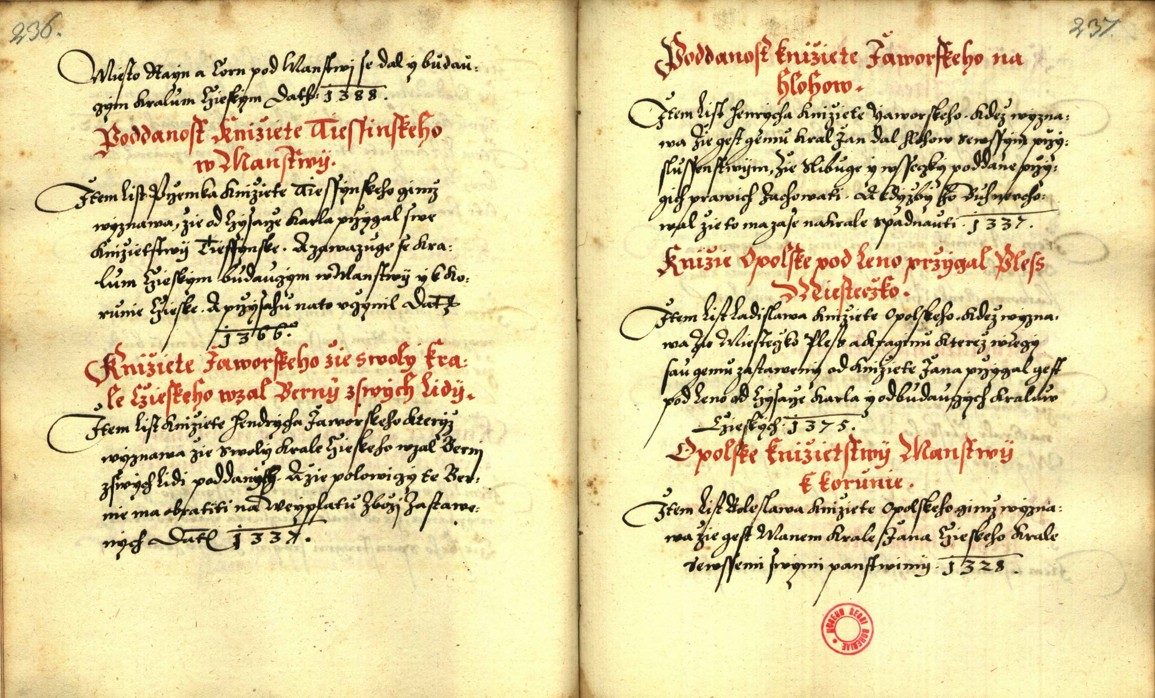 236.
Miesto Rayn a Torn pod Manstwj se dal y budau-
gym Kralum Czieskym Dath: 1388.
Poddanost Knižiete Tiessinskeho
w Manstwij.
Item List Przemka Knižiete Tiessynskeho gimž
wyznawa, žie od Czysarze Karla przygal swe
Knižietstwij Tiessynske. A zawazuge se Kra-
lum Czieskym budaugym w Manstwij y k Ko-
runie Czieske. A przysahu na to vczynil Dath
1366.
Knižiete Jaworskeho žie s woly Kra-
le Czieskeho wzal Berny z swych Lidy.
Item List Knižiete Hendrycha Jaworskeho kteryž
wyznawa žie s woly Krale Czieskeho wzal Berni
z swych Lidi poddanych. A žie polowiczy te Ber-
nie ma obratiti na weyplatu Zboži Zastawe-
nych Dath 1337.
237.
Poddanost Knižiete Jaworskeho na
Hlohow.
Item List Henrycha Knižiete Yaworskeho. Kdež wyzna-
wa žie gest gemu Kral Jan dal Hlohow se wssym przy-
slussenstwym, žie Slibuge y wsseczky poddane przy
gich prawich Zachowati. A kdyžby ho Buh nevcho-
wal žie to ma zase na Krale Spadnauti. 1337.
Knižie Opolske pod Leno przygal Pless
Miesteczko.
Item List Ladislawa Knižiete Opolskeho. Kdež wyzna-
wa že Miesteczko Pless a kragimu kterež w niegy
sau gemu zastaweny od Knižiete Jana przygal gest
pod Leno od Czysarze Karla y od budauczych Kraluw
Czieskych. 1375.
Opolske Knižietstwij Manstwij
k Korunie.
Item List Boleslawa Knižiete Opolskeho gimž wyzna-
wa žie gest Manem Krale Jana Czieskeho Krale
se wssemi swymi panstwimi. 1328.
MUSEUM REGNI BOHEMIAE